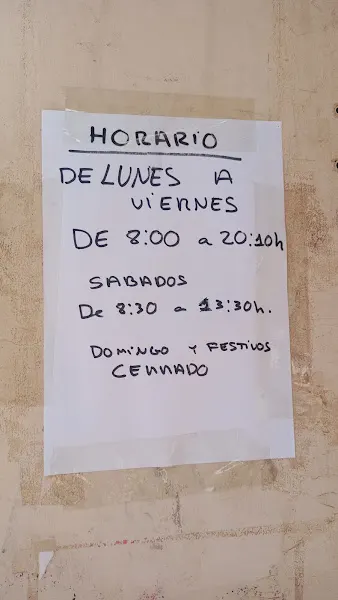 HORARIO
DE LUNES A
VIERNES
DE 8:00 a 20:10h
SABADOS
De 8:30 a 13:30h.
DOMINGO Y FESTIVOS
CERRADO